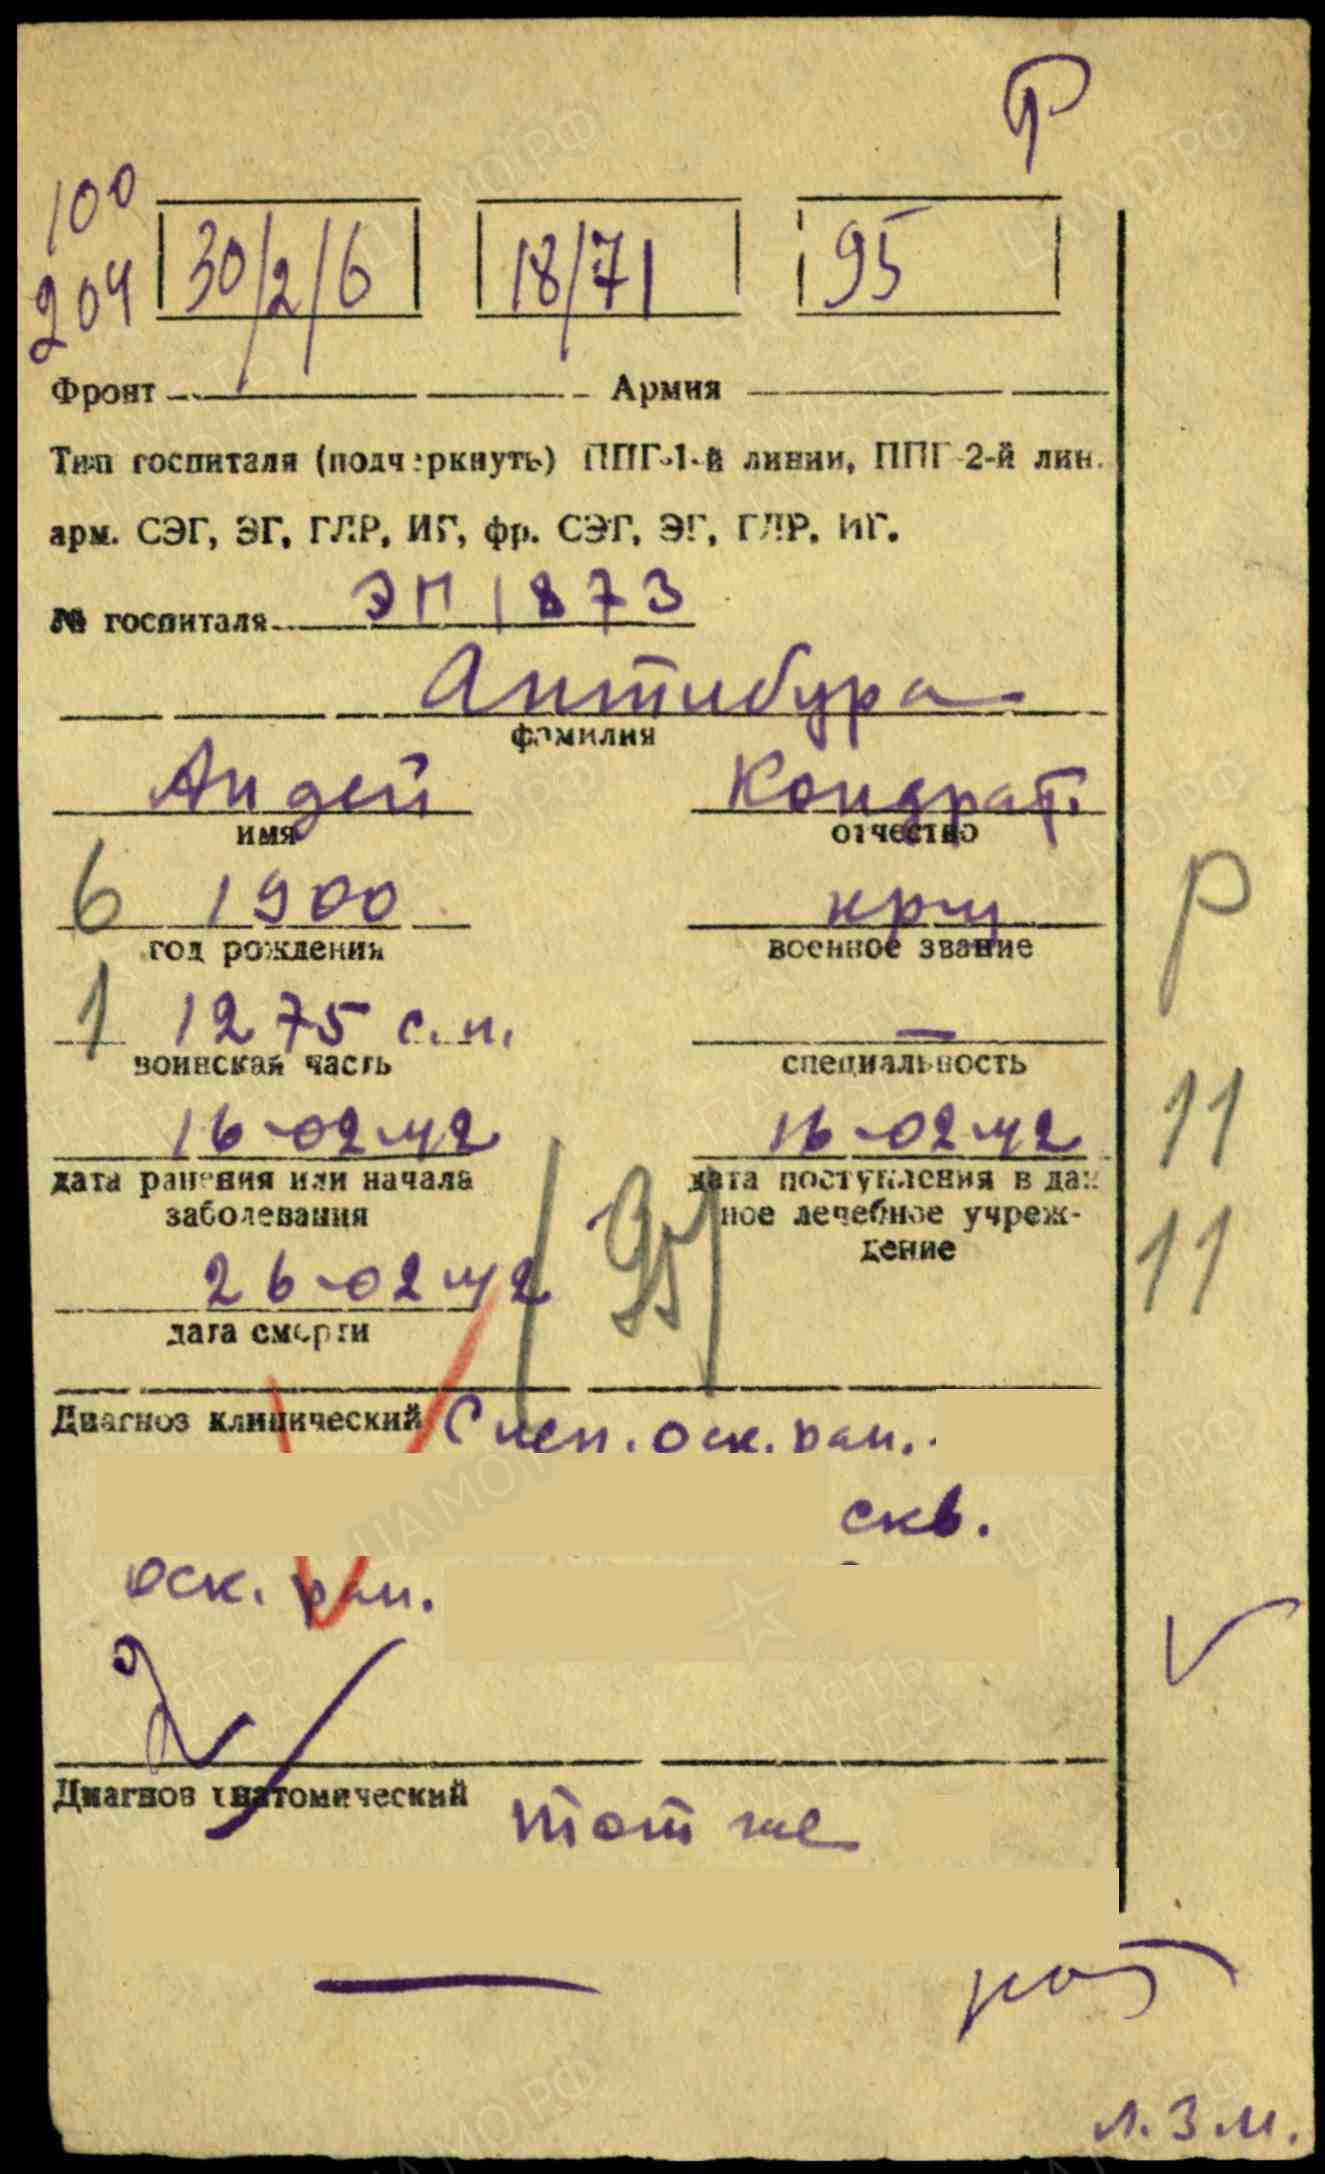 Ф
100
204
30/2/6 18/71 95
Фронт Армия
Тип госпиталя (подчеркнуть) ППГ-1-й линии, ППГ-2-й лин.
арм. СЭГ, ЭГ, ГЛР, ИГ, фр. СЭГ, ЭГ, ГЛР, ИГ.
№ госпиталя ЭП 1873
Антибура
фамилия
Андей Кондрат.
имя отчество
6 1900 крц Р
год рождения военное звание
1 1275 с.п. —
воинская часть специальность
11
16-02-42 16-02-42
дата ранения или начала заболевания
дата поступления в данное лечебное учреждение
95
11
26-02-42
дата смерти
Диагноз клинический Слеп. оск. ран.
скв.
оск. ран.
Диагноз анатомический тот же
л.з.м.